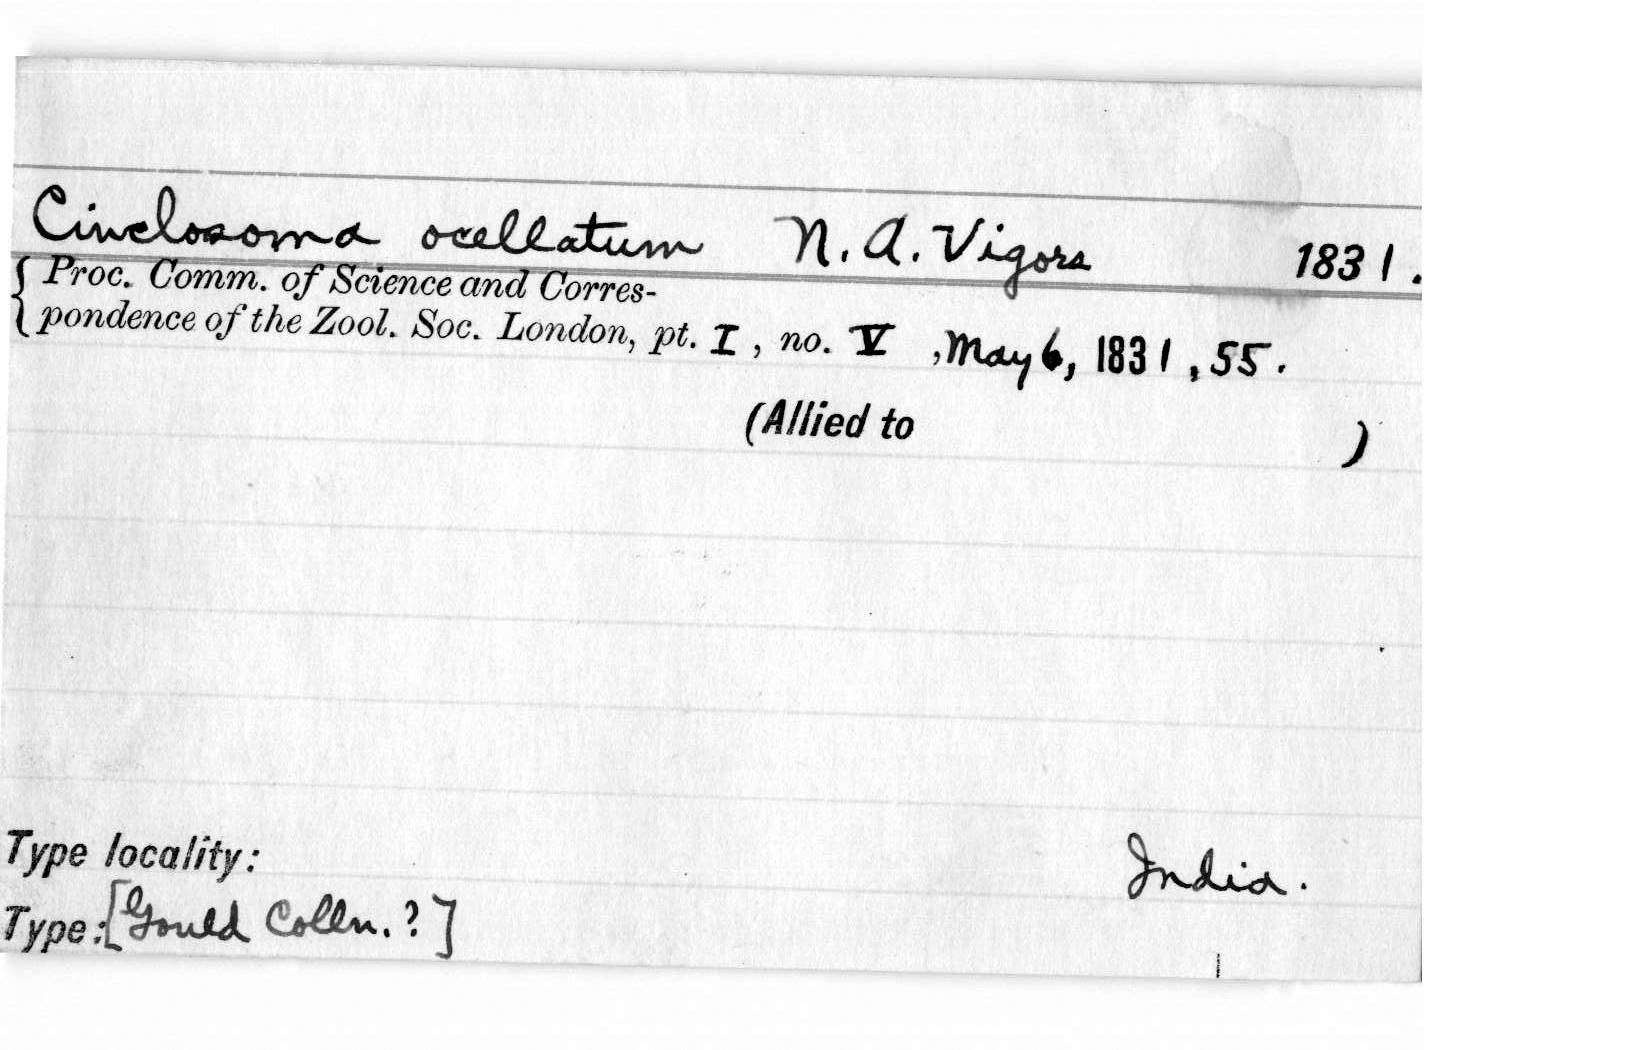 Cinclosoma ocellatum N. A. Vigors 1831.
{ Proc. Comm. of Science and Corres-
pondence of the Zool. Soc. London, pt. I, no. V, May 6, 1831, 55.
(Allied to )
Type locality: India.
Type: [Gould Colln. ?]